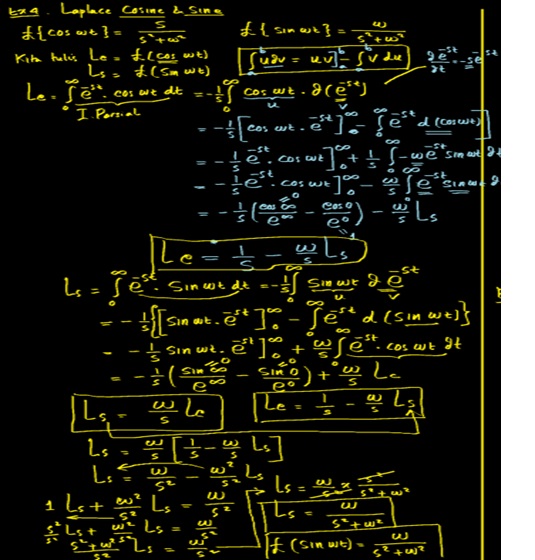 Ex 4. Laplace Cosine & Sine
£{cos ωt} = s/(s²+ω²)    £{sin ωt} = ω/(s²+ω²)
Kita tulis Lc = £(cos ωt)    ∫ₐᵇ u dv = uv]ₐᵇ - ∫ₐᵇ v du    de^-st/dt = -s e^-st
Ls = £(sin ωt)
Lc = ∫₀^∞ e^-st · cos ωt dt = -1/s ∫₀^∞ cos ωt · d(e^-st)
I. Parsial    u    v
= -1/s [cos ωt · e^-st]₀^∞ - ∫₀^∞ e^-st d(cos ωt)]
= -1/s e^-st · cos ωt]₀^∞ + 1/s ∫₀^∞ -ω e^-st sin ωt dt
= -1/s e^-st · cos ωt]₀^∞ - ω/s ∫₀^∞ e^-st sin ωt dt
= -1/s (cos ∞/e^∞ - cos 0/e^0) - ω/s Ls
Lc = 1/s - ω/s Ls
Ls = ∫₀^∞ e^-st · sin ωt dt = -1/s ∫₀^∞ sin ωt d e^-st
u    v
= -1/s {[sin ωt · e^-st]₀^∞ - ∫₀^∞ e^-st d(sin ωt)}
= -1/s sin ωt · e^-st]₀^∞ + ω/s ∫₀^∞ e^-st · cos ωt dt
= -1/s (sin ∞/e^∞ - sin 0/e^0) + ω/s Lc
Ls = ω/s Lc    Lc = 1/s - ω/s Ls
Ls = ω/s [1/s - ω/s Ls]
Ls = ω/s² - ω²/s² Ls    Ls = ω/s² x s²/(s²+ω²)
1 Ls + ω²/s² Ls = ω/s²    Ls = ω/(s²+ω²)
s²/s² Ls + ω²/s² Ls = ω/s²
(s²+ω²)/s² Ls = ω/s²    £(sin ωt) = ω/(s²+ω²)